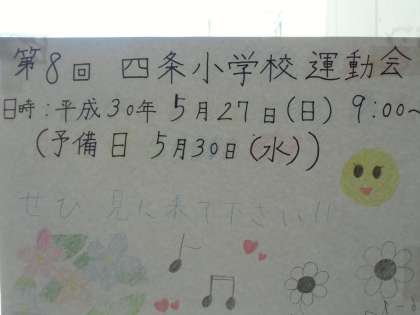 第8回 四条小学校 運動会
日時:平成30年 5月27日(日) 9:00~
(予備日 5月30日(水))
ぜひ 見に来て下さい!!